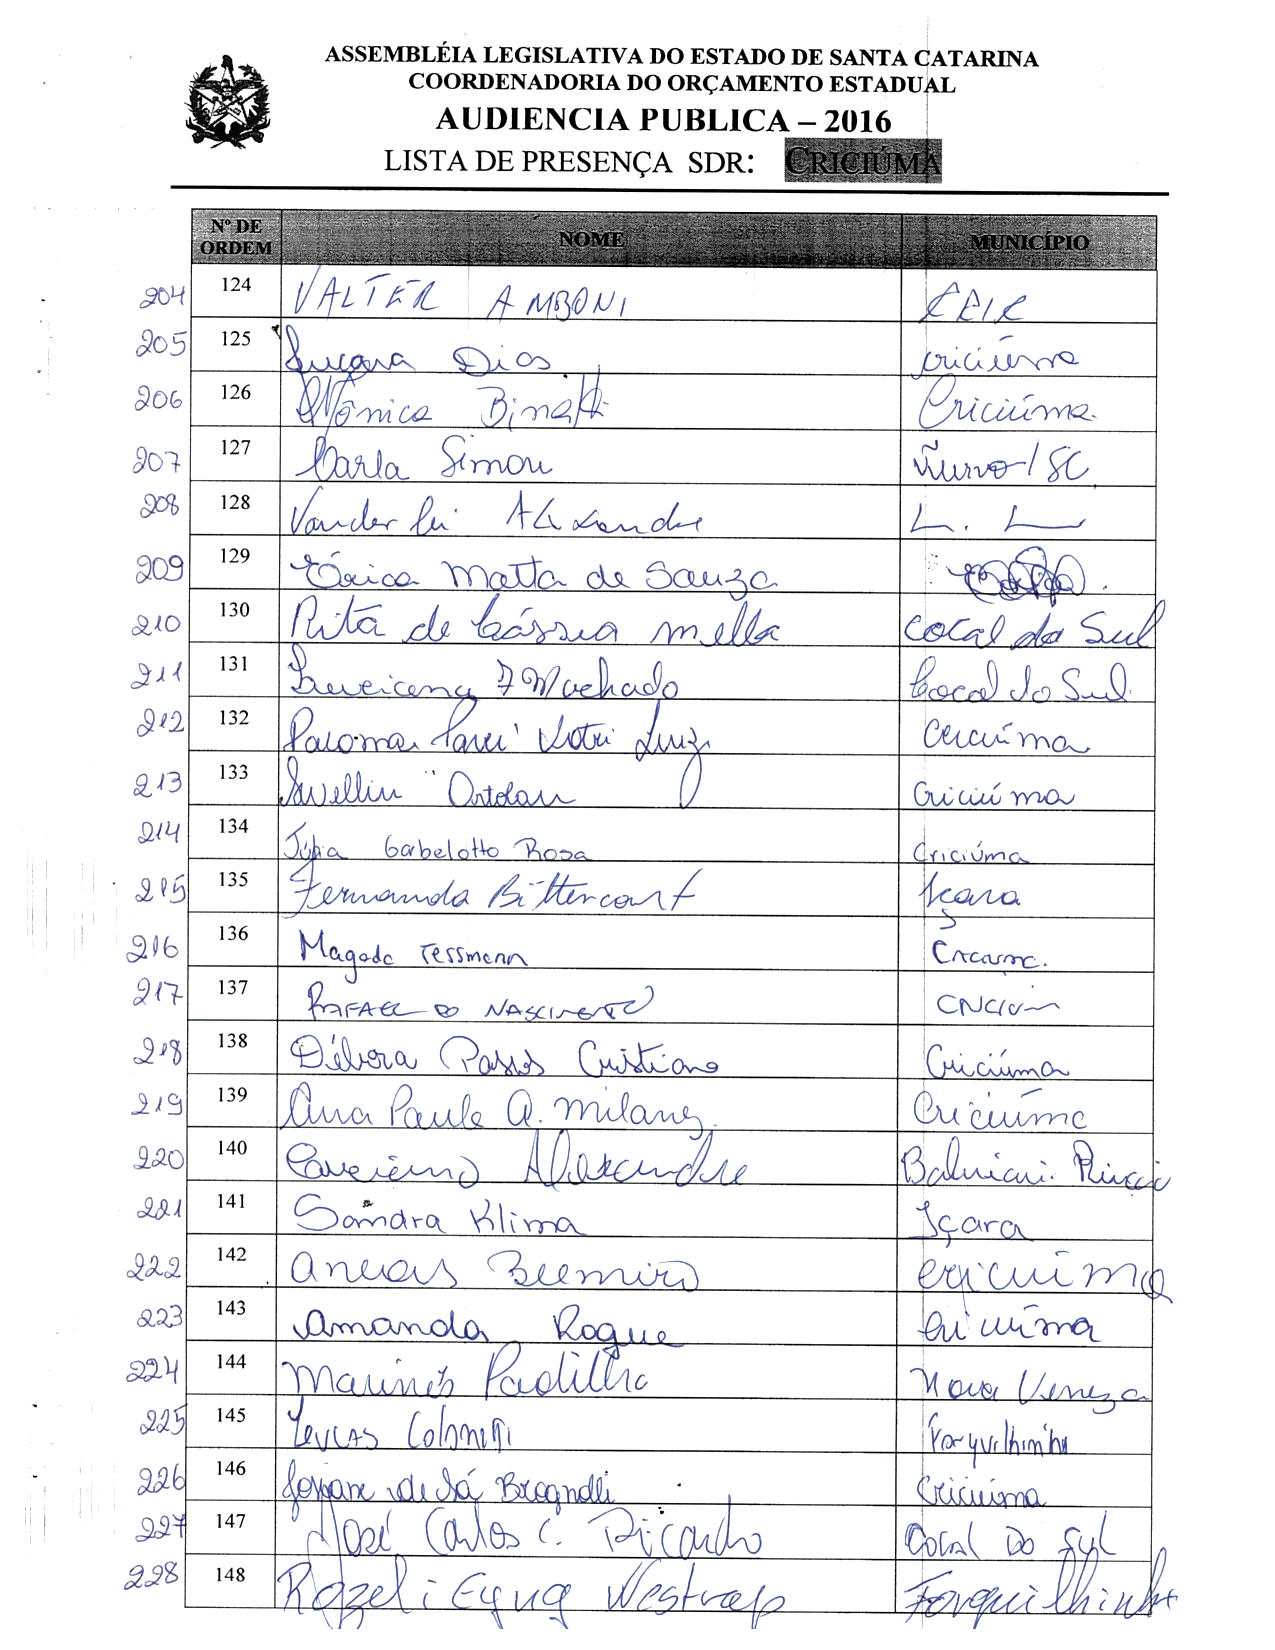 ASSEMBLÉIA LEGISLATIVA DO ESTADO DE SANTA CATARINA
COORDENADORIA DO ORÇAMENTO ESTADUAL
AUDIENCIA PUBLICA – 2016
LISTA DE PRESENÇA SDR: CRICIÚMA
Nº DE ORDEM NOME MUNICÍPIO
204 124 VALTER AMBONI
205 125 Dias Criciúma
206 126 Mônica Criciúma
207 127 Carla Simon /SC
208 128 Vanderlei Alexandre L. L
209 129 Érica Matta de Souza
210 130 Rita de Cássia Mella Cocal do Sul
211 131 Machado Cocal do Sul
212 132 Paloma Luiz Criciúma
213 133 Suellin Ortolan Criciúma
214 134 Júlia Garbelotto Rosa Criciúma
215 135 Fernanda Bittencourt Içara
216 136 Magada Tessmann
217 137 RAFAEL DO NASCIMENTO
218 138 Débora Passos Cristiano Criciúma
219 139 Ana Paula A. Milanez Criciúma
220 140 Alexandre
221 141 Sandra Klima Içara
222 142 Criciúma
223 143 Amanda Roque Criciúma
224 144 Marinês Padilha Nova Veneza
225 145 Lucas Colonetti Forquilhinha
226 146 de Sá Brognolli Criciúma
227 147 José Carlos C. Ricardo Cocal do Sul
228 148 Rozeli Westrup Forquilhinha